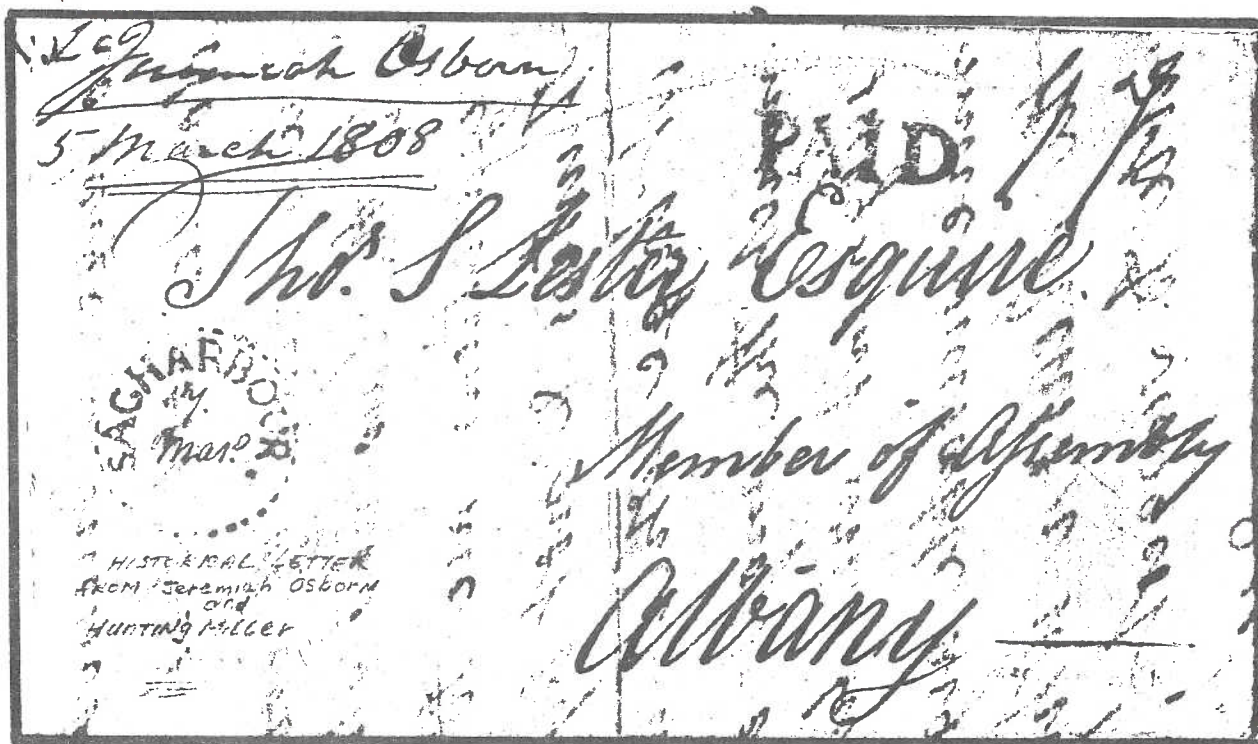 Jeremiah Osborn
5 March 1808
PAID
Thos. S Lester Esquire
SAGHARBOUR
Mar.
Member of Assembly
HISTORICAL LETTER
FROM Jeremiah Osborn
and
Hunting Miller
Albany